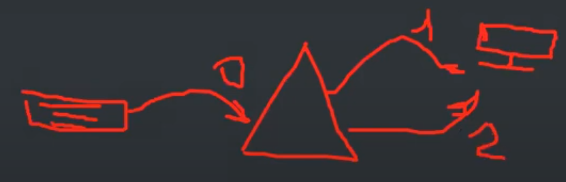 0
1
2